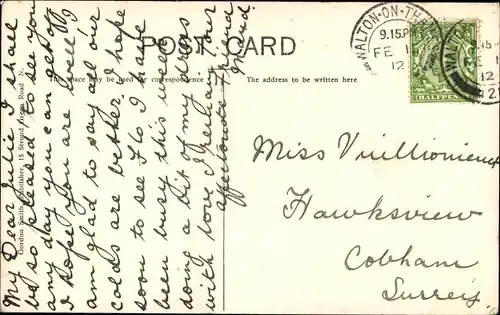 POST CARD
This space may be used for correspondence
The address to be written here
Gordon Smith, Publisher, 15 Stroud Green Road N.
WALTON-ON-THA
9.15PM
FE 1
12
WALTON
15
FE 1
12
HALFPENNY
My Dear Julie I shall
be so pleased to see you
any day you can get off
I hope you are well I
am glad to say all our
colds are better, I hope
soon to see Flo I have
been busy this week
doing a bit of my
with love I remain your
affectionate Friend
Maud
Miss
Hawksview
Cobham
Surrey